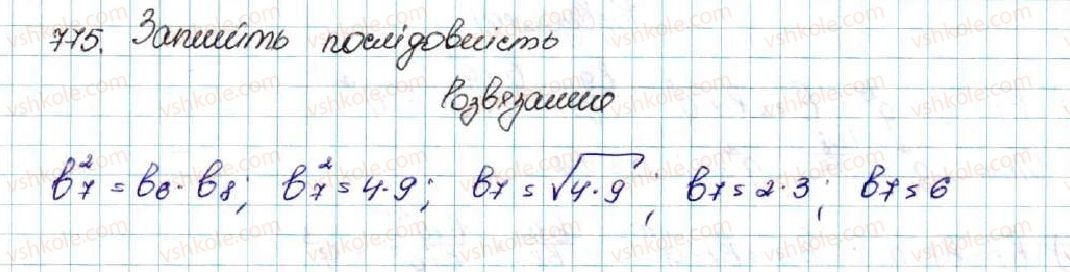 775. Запишіть послідовність
Розв'язання
b₇² = b₆ · b₈; b₇² = 4 · 9; b₇ = √(4 · 9); b₇ = 2 · 3; b₇ = 6